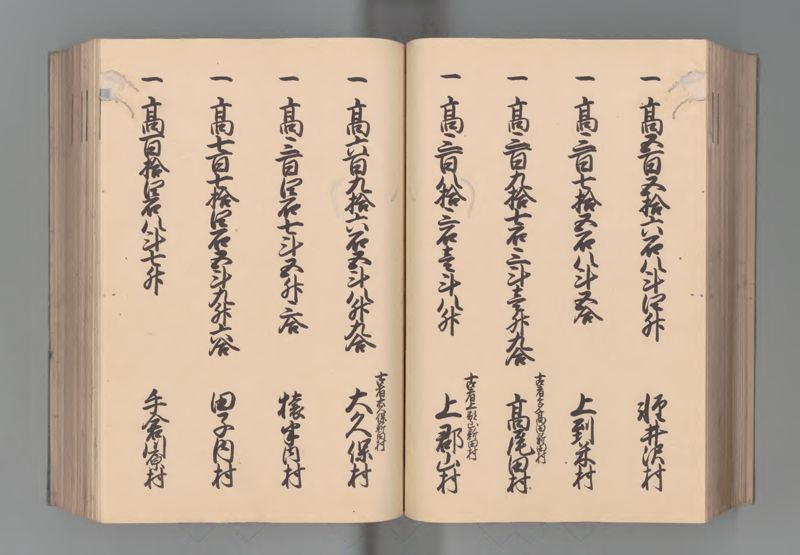 一高五百五拾六石八斗四升 軽井沢村
一高三百七拾五石八斗五合 上到米村
一高三百九拾七石三斗壱升九合 高尾田村
一高三百八拾三石壱斗八升 上郡山村
一高六百九拾六石五斗八升九合 古者大久保新田村 大久保村
一高三百四石七斗五升三合 内村
一高七百十拾四石五斗九升六合 田子内村
一高百拾四石八斗七升 手倉村